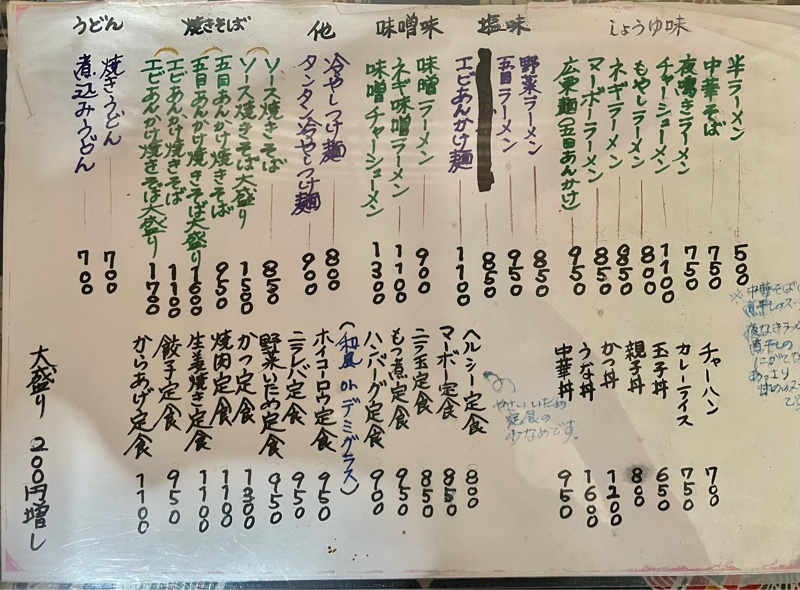 しょうゆ味
半ラーメン 500
中華そば 750
夜鳴きラーメン 750
チャーシューメン 1100
もやしラーメン 800
ネギラーメン 850
マーボーラーメン 850
広東麺(五目あんかけ) 950
塩味
野菜ラーメン 850
五目ラーメン 950
850
エビあんかけ麺 1100
味噌味
味噌ラーメン 900
ネギ味噌ラーメン 1100
味噌チャーシューメン 1300
他
冷やしつけ麺 800
タンタン冷やしつけ麺 900
焼きそば
ソース焼きそば 850
ソース焼きそば大盛り 1500
五目あんかけ焼きそば 950
五目あんかけ焼きそば大盛り 1600
エビあんかけ焼きそば 1100
エビあんかけ焼きそば大盛り 1700
うどん
焼きうどん 700
煮込みうどん 700
※中華そばは
煮干しのスー
夜なきラーメ
煮干しの
にがて
あっさり
甘めのス
チャーハン 700
カレーライス 750
玉子丼 650
親子丼 800
かつ丼 1200
うな丼 1600
中華丼 950
ヘルシー定食 800
やさいいため
定食の
少なめです。
マーボー定食 850
ニラ玉定食 850
もつ煮定食 950
ハンバーグ定食 900
(和風orデミグラス)
ホイコーロウ定食 950
ニラレバ定食 950
野菜いため定食 950
かつ定食 1300
焼肉定食 1100
生姜焼き定食 1100
餃子定食 950
からあげ定食 1100
大盛り 200円増し